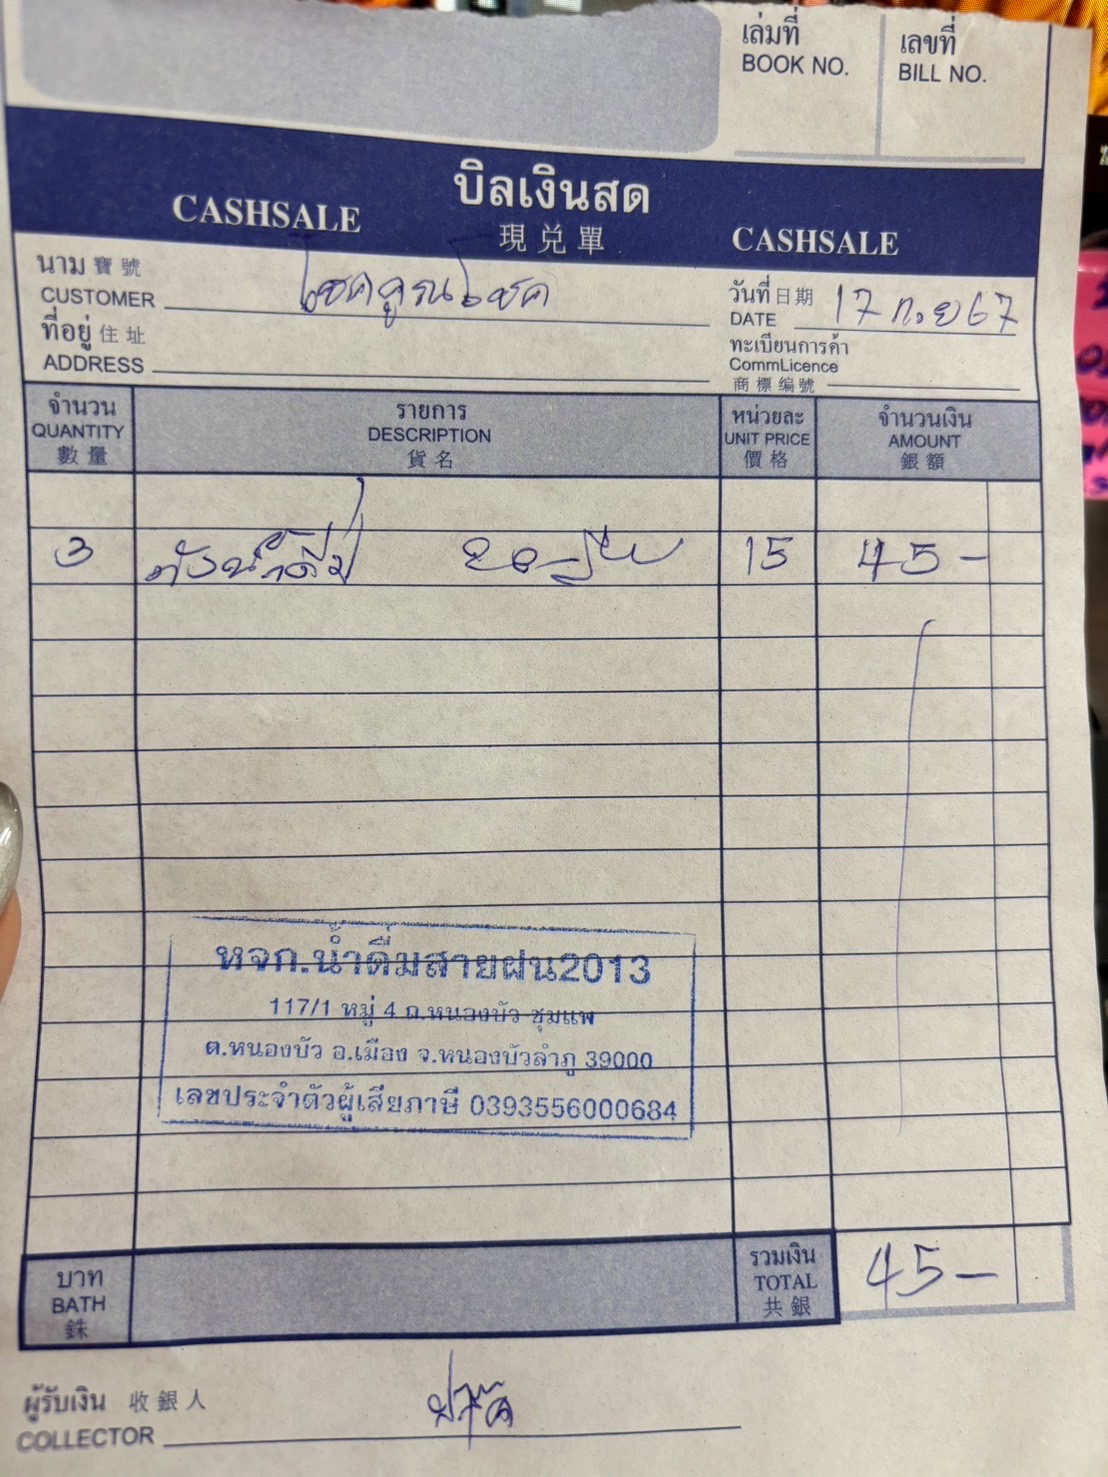 เล่มที่
BOOK NO.
เลขที่
BILL NO.
บิลเงินสด
CASHSALE 現兑單 CASHSALE
นาม 寶號
CUSTOMER โชคคูณโชค
วันที่ 日期
DATE 17 ก.ย 67
ที่อยู่ 住址
ADDRESS
ทะเบียนการค้า
CommLicence
商標编號
จำนวน
QUANTITY
數量
รายการ
DESCRIPTION
貨名
หน่วยละ
UNIT PRICE
價格
จำนวนเงิน
AMOUNT
銀額
3 ถังน้ำดื่ม 15 45-
หจก.น้ำดื่มสายฝน2013
117/1 หมู่ 4 ถ.หนองบัว-ชุมแพ
ต.หนองบัว อ.เมือง จ.หนองบัวลำภู 39000
เลขประจำตัวผู้เสียภาษี 0393556000684
บาท
BATH
銖
รวมเงิน
TOTAL
共銀
45-
ผู้รับเงิน 收銀人
COLLECTOR